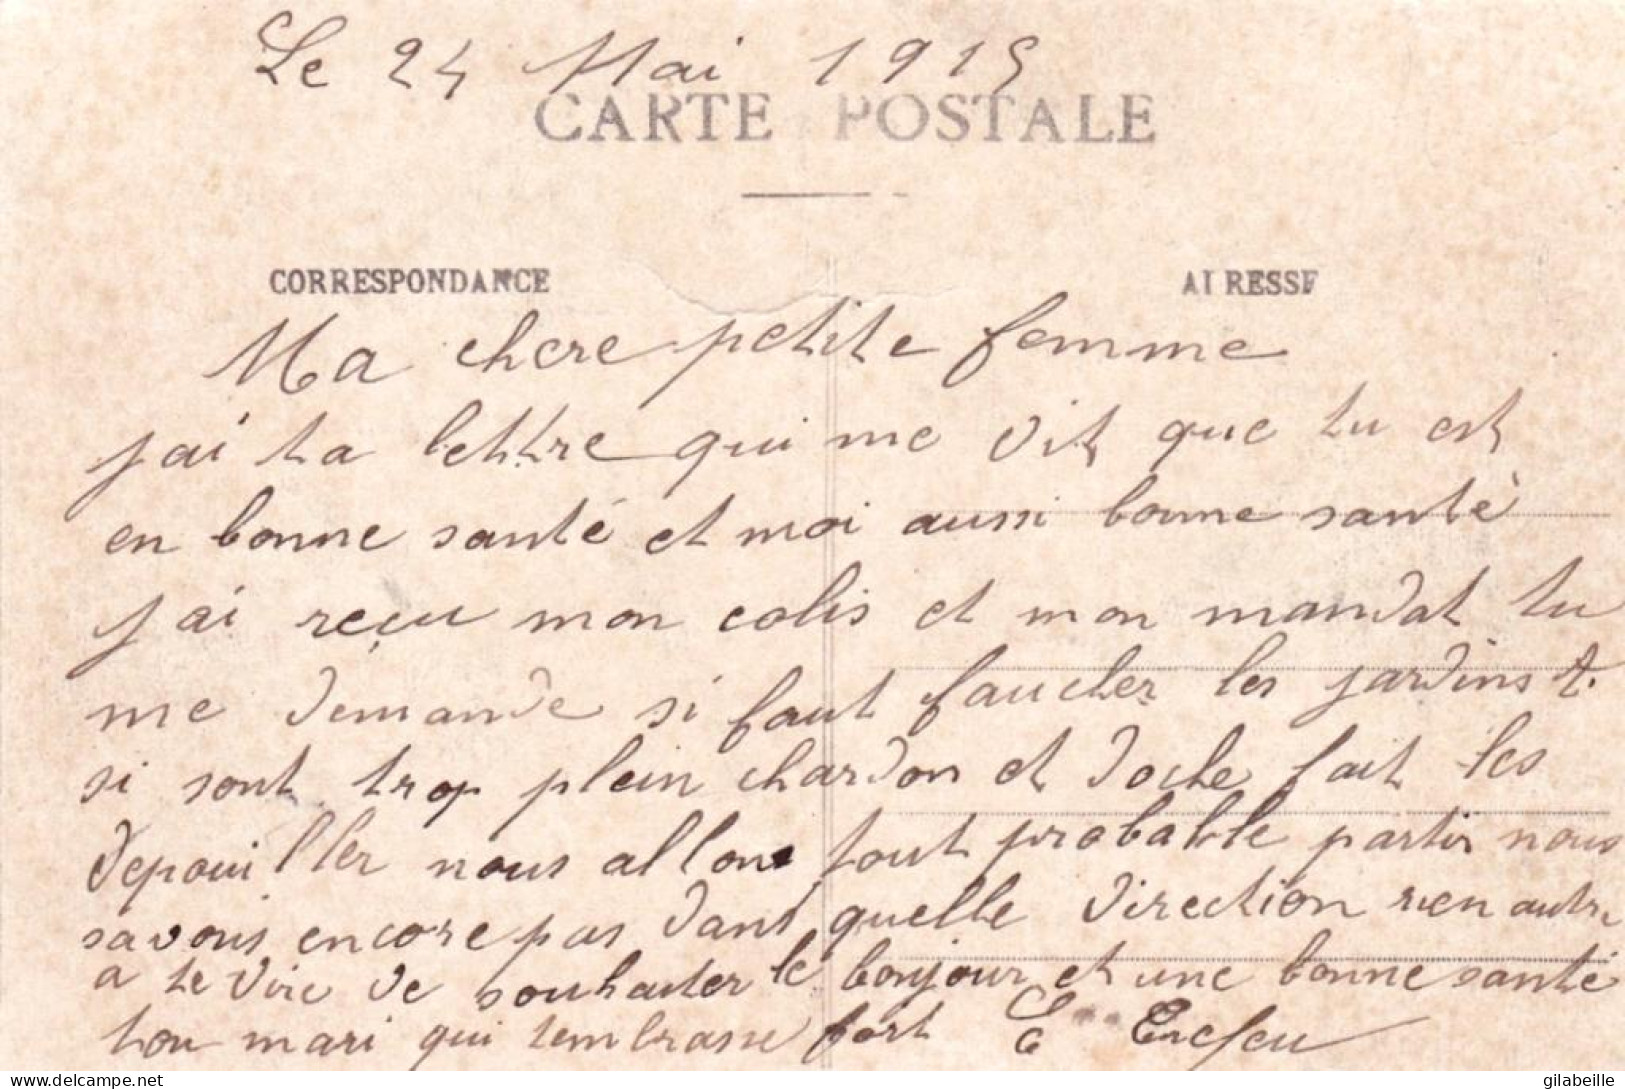 Le 24 Mai 1915
CARTE POSTALE
CORRESPONDANCE
ADRESSE
Ma chere petite femme
j'ai ta lettre qui me dit que tu est
en bonne santé et moi aussi bonne santè
j'ai reçu mon colis et mon mandat tu
me demande si faut faucher les jardins
si sont trop plein chardon et doche fait les
depouiller nous allons tout probable partir nous
savons encore pas dans quelle direction rien autre
a te dire de souhaiter le bonjour et une bonne santé
ton mari qui tembrasse fort E
delcampe.net
gilabeille